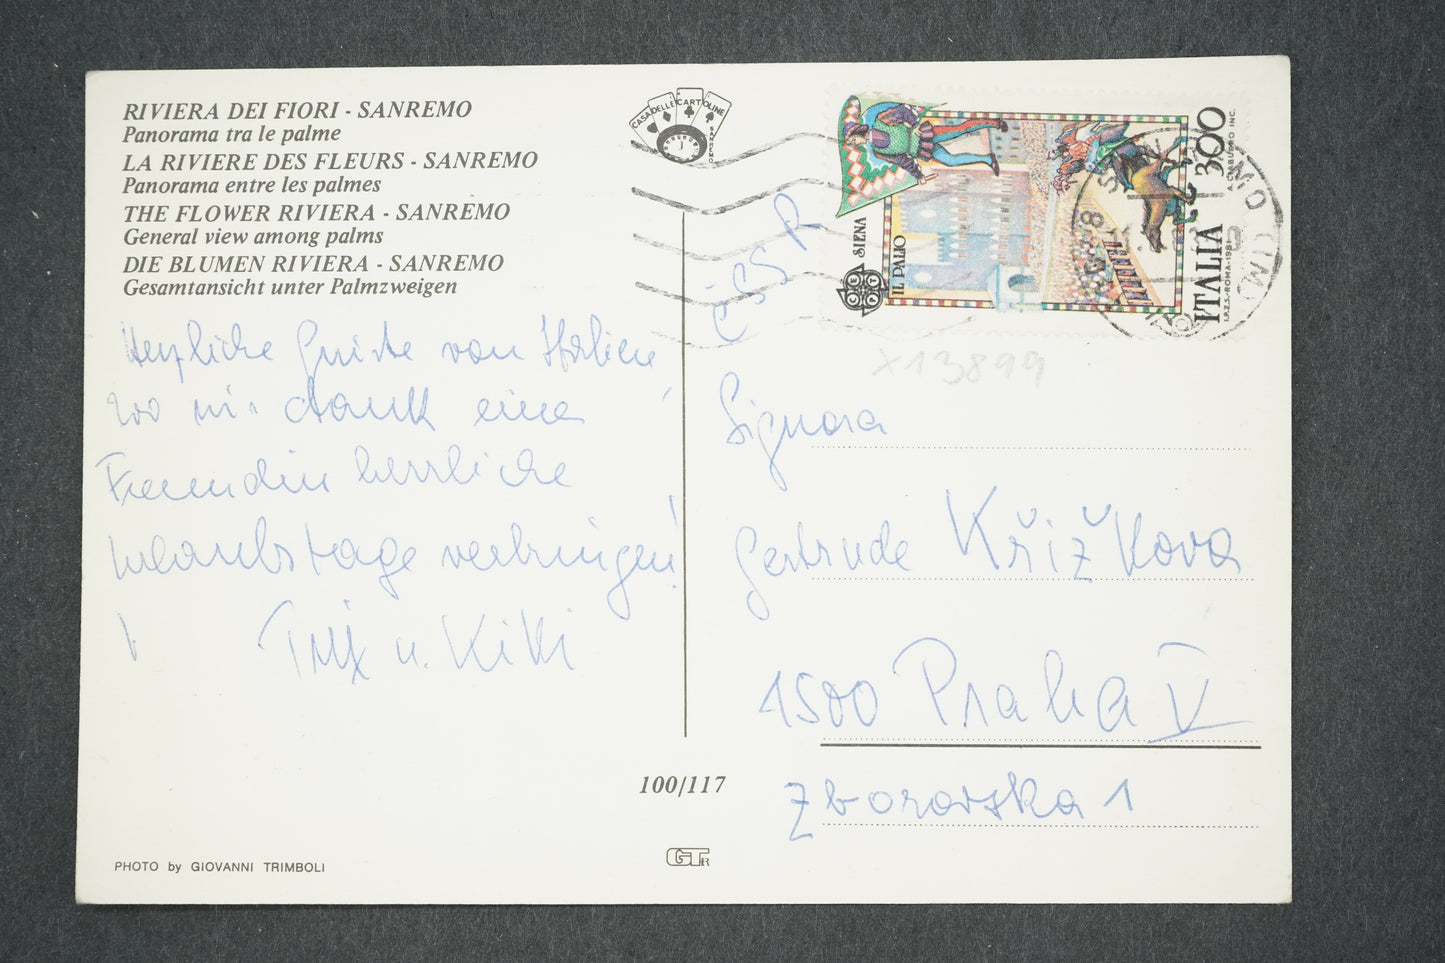 RIVIERA DEI FIORI - SANREMO
Panorama tra le palme
LA RIVIERE DES FLEURS - SANREMO
Panorama entre les palmes
THE FLOWER RIVIERA - SANREMO
General view among palms
DIE BLUMEN RIVIERA - SANREMO
Gesamtansicht unter Palmzweigen
CASA DELLE CARTOLINE
SANREMO
SIENA
IL PALIO
ITALIA 300
I.P.Z.S.-ROMA-1981
ČSSR
X13899
Herzliche Grüße von Italien,
wo wir dank einer
Freundin herrliche
Urlaubstage verbringen!
Trix u. KiKi
Signora
Gertrude Křižkova
1500 Praha V
Zborovska 1
100/117
PHOTO by GIOVANNI TRIMBOLI
GTR